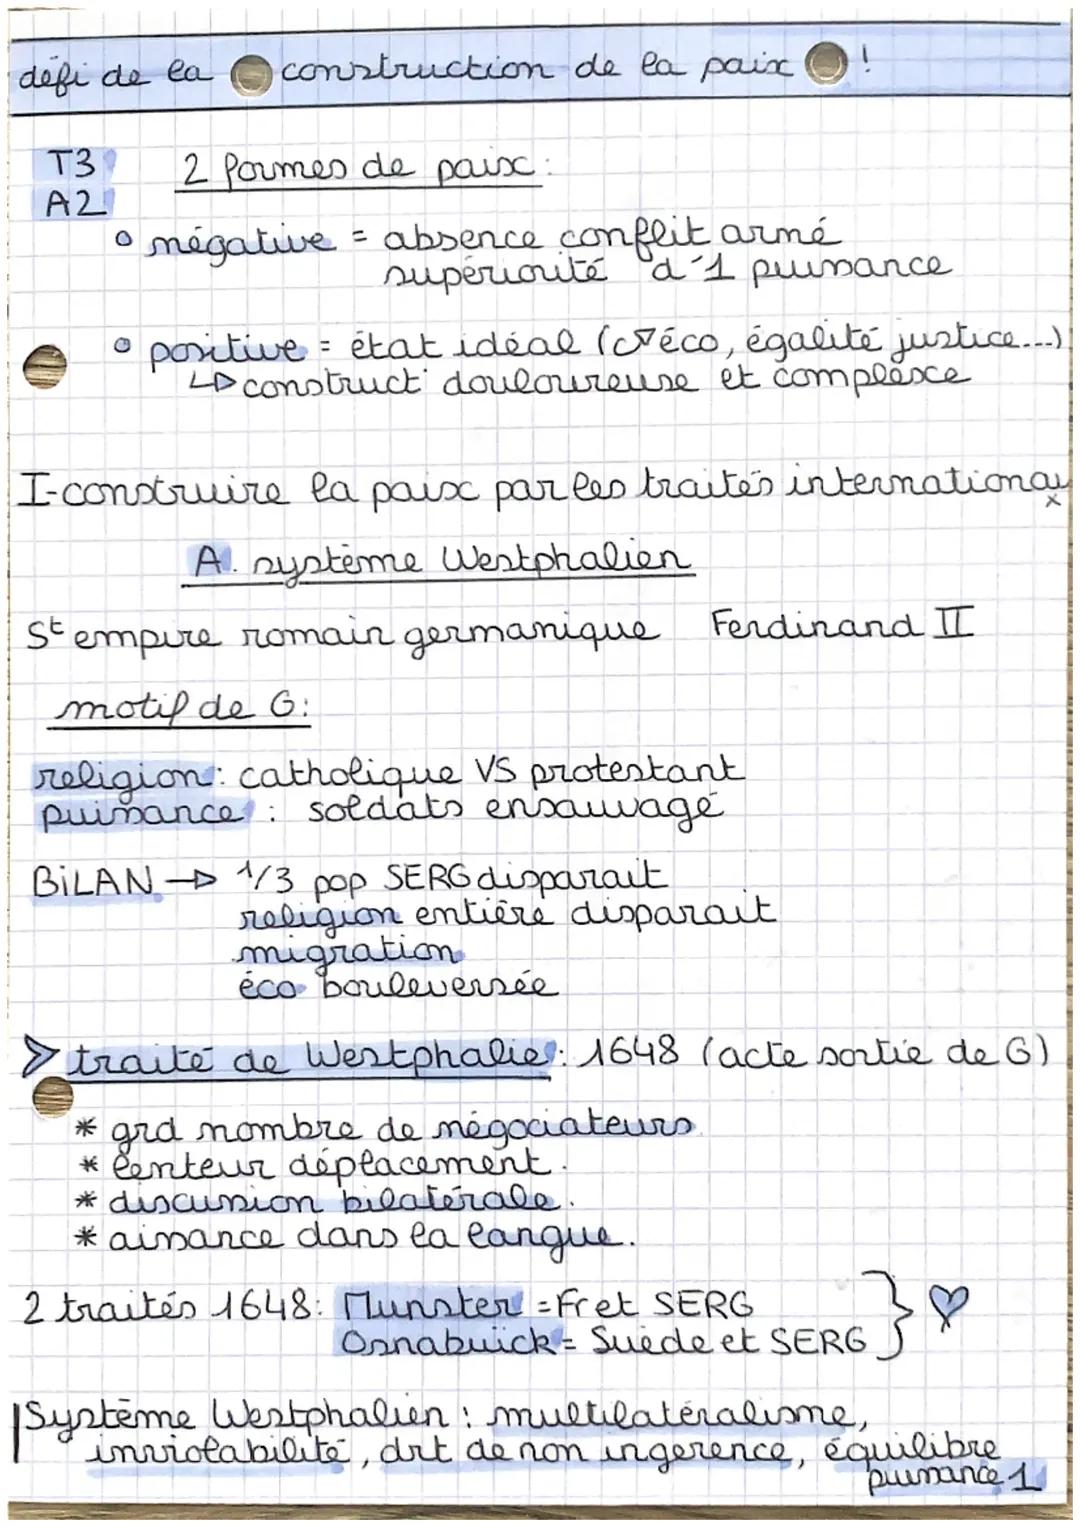 défi de la construction de la paix !
T3
A2
2 formes de paix :
négative = absence conflit armé
supériorité d'1 puissance
positive = état idéal (éco, égalité justice...)
↳ construct° douloureuse et complexe
I-construire la paix par les traités internationaux
A. système Westphalien
St empire romain germanique Ferdinand II
motif de G:
religion : catholique VS protestant
puissance : soldats ensauvagé
BiLAN → 1/3 pop SERG disparait
religion entière disparait
migration
éco bouleversée
> traité de Westphalie : 1648 (acte sortie de G)
* grd nombre de négociateurs
* lenteur déplacement.
* discussion bilatérale.
* aissance dans la langue.
2 traités 1648: Munster = Fr et SERG
Osnabuick = Suède et SERG } ♡
Système Westphalien : multilatéralisme,
inviolabilité, drt de non ingerence, équilibre
puissance 1